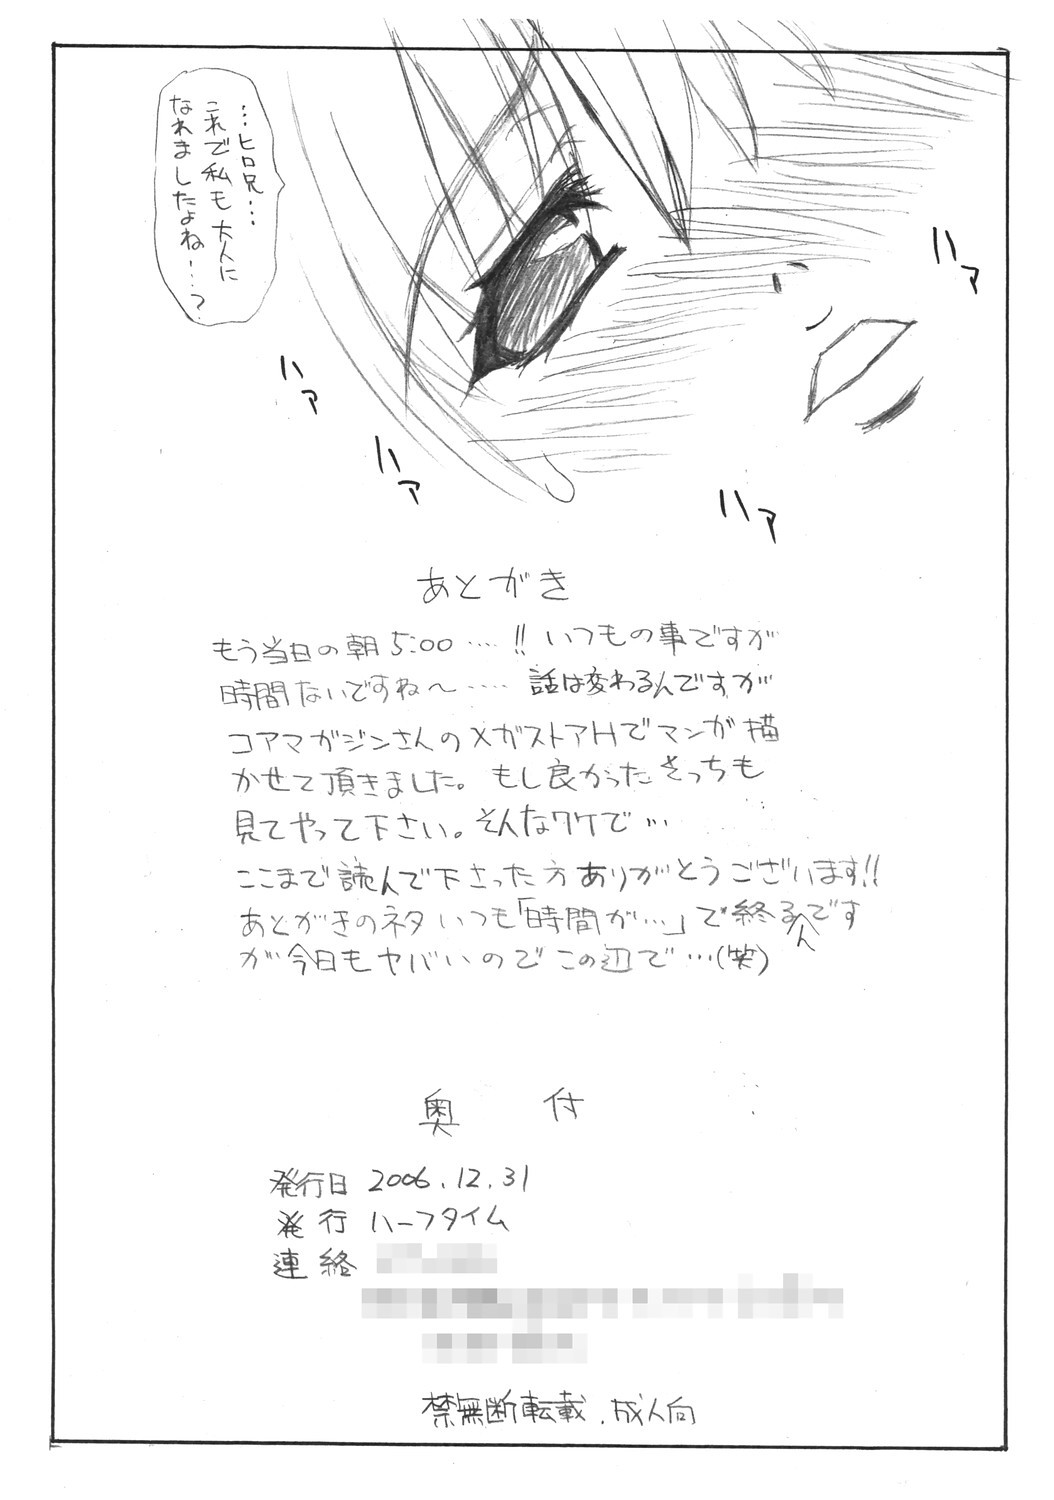 …ヒロ兄…
これで私も大人に
なれましたよね…?
ハァ
ハァ
ハァ
ハァ
あとがき
もう当日の朝5:00……!!いつもの事ですが
時間ないですね〜……話は変わるんですが
コアマガジンさんのメガストアHでマンガ描
かせて頂きました。もし良かったらそっちも
見てやって下さい。そんなワケで…
ここまで読んで下さった方ありがとうございます!!
あとがきのネタいつも「時間が…」で終るんです
が今日もヤバいのでこの辺で…(笑)
奥 付
発行日 2006.12.31
発行 ハーフタイム
連絡
禁無断転載.成人向